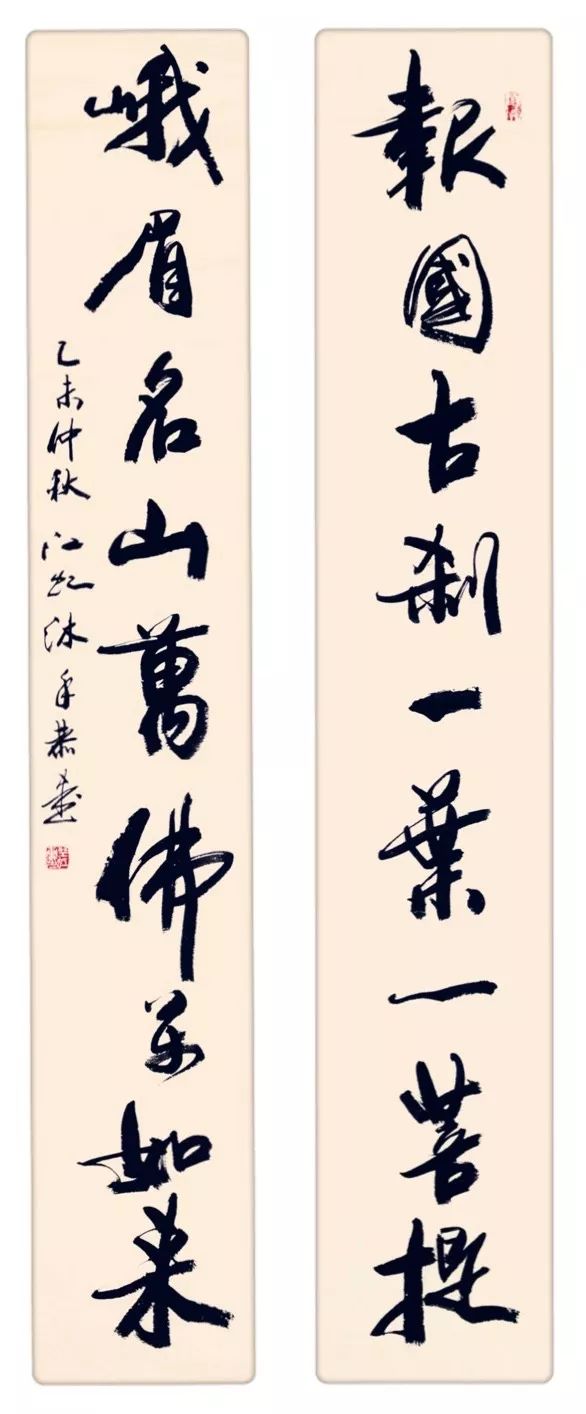 報國古剎一葉一菩提
峨眉名山萬佛萬如来
乙未仲秋 江 沐手恭書